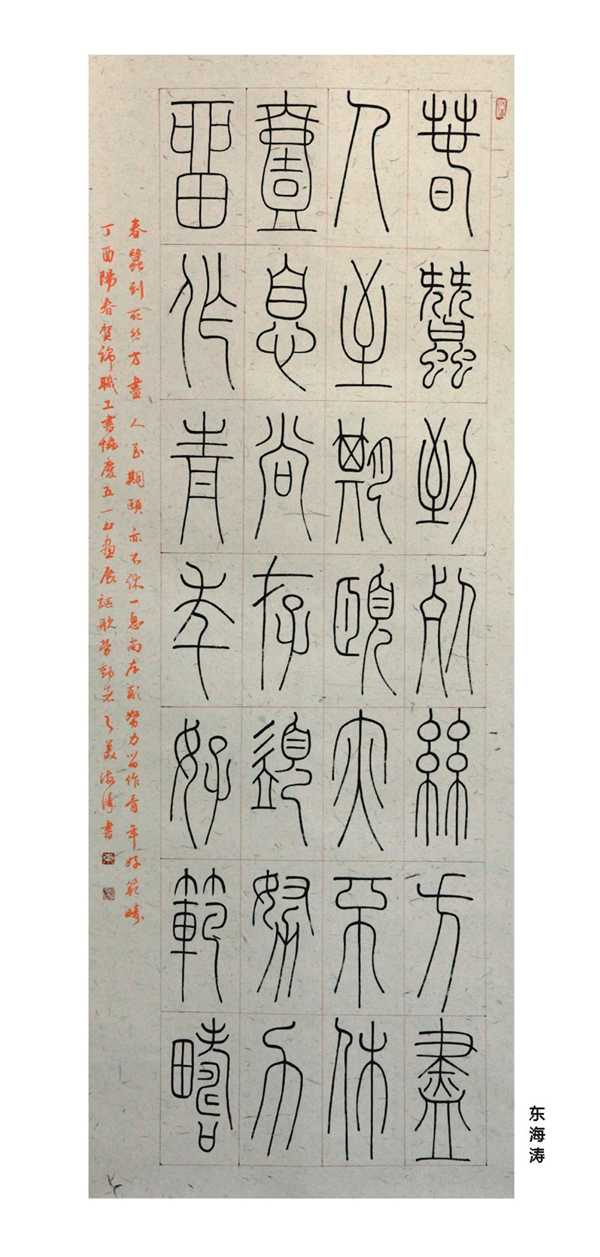 春蠶到死絲方盡
人至期頤亦不休
壹息尚存須努力
留作青年好範疇
春蠶到死丝方盡 人至期頤亦不休 一息尚存須努力 留作青年好範疇
丁酉陽春賀錦職工書協慶五一书畫展謳歌勞動之美海濤書
东海涛